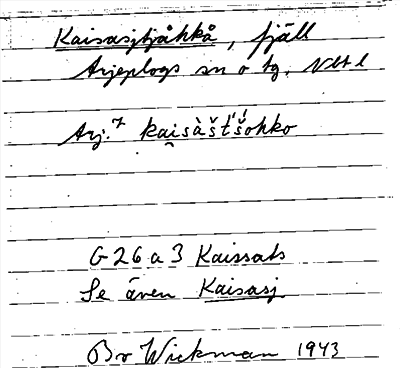 Kaisasjtjåhkå, fjäll
Arjeplogs sn o tg, Vbt l
Arj. kai̯sàšt́šohko
G 26 a 3 Kaissats
Se även Kaisasj
Bo Wickman 1943